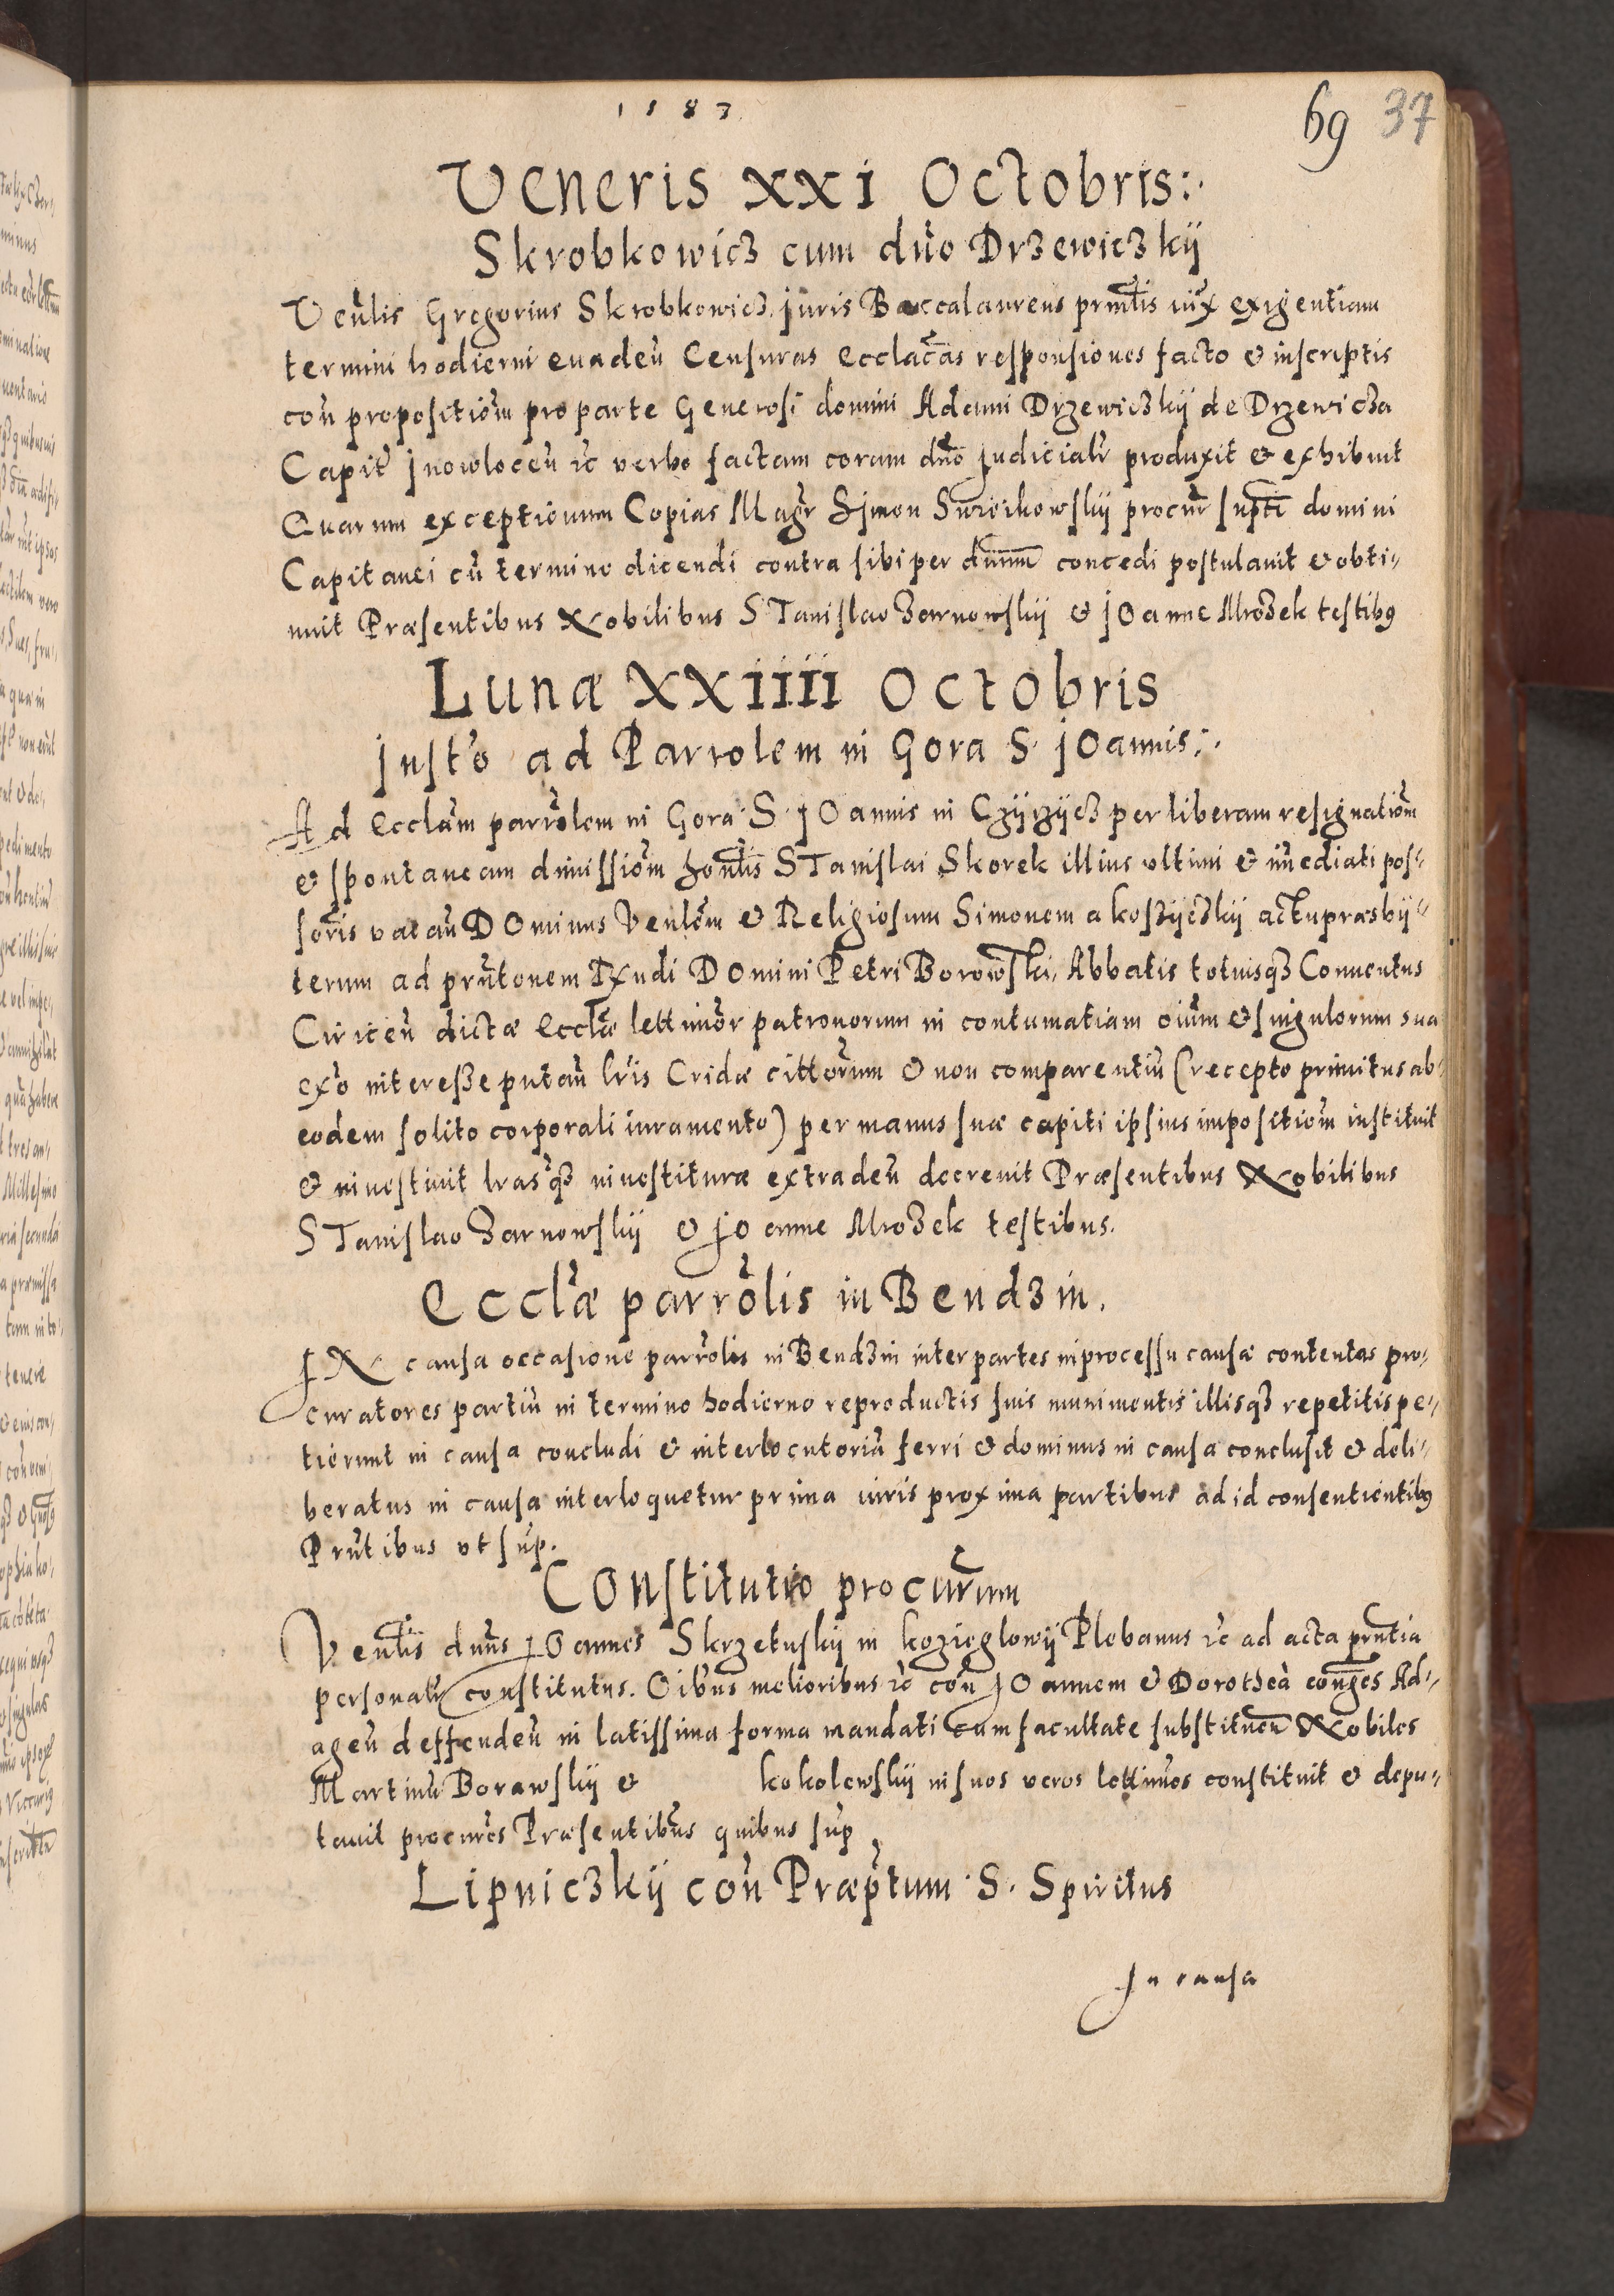 1583
69 37
Veneris XXI Octobris:·
Skrobkowicz cum dño Drzewiczkÿ
Veñlis Gregorius Skrobkowicz juris Baccalaureus prñtis iux̃ exigentiam
termini hodierni euadeñ Censuras Ecclãcãs responsiones facto & inscriptis
coñ propositiõm pro parte Generosi domini Adami Drzewiczkÿ de Drzewicza
Capit̃ Inowloceñ ꝛc verbo factam coram dño judicialr̃ produxit & exhibuit
Quarum exceptionum Copias Magr̃ Simon procur̃ supti domini
Capitanei cũ termino dicendi contra sibi per dñum concedi postulauit & obti⸗
nuit Præsentibus Nobilibus STanislao Zarnowskÿ & jOanne Mrozek testibꝯ
Lunæ XXIIII Octobris
Insto ad Parrolem in Gora S. jOannis:·
Ad Ecclãm parrolem in Gora S. jOannis in Czÿrzÿcz per liberam resignatiõm
& spontaneam dimissiõm hoñlis STanislai Skorek illius vltimi & im̃ediati pos⸗
soris vacañ DOminus Veñlem & Religiosum Simonem a koszÿczkÿ actu præsbÿ⸗
terum ad prñtonem Rx̃ndi DOmini Petri Borowski, Abbatis totiusqȝ Conuentus
Ciriceñ dictæ Ecclæ lettimor̃ patronorum in contumatiam oĩum & singulorum sua
exõ interesse putañ lrĩs Cridæ cittõrum & non comparentiũ (recepto primitus ab
eodem solito corporali iuramento) per manus suæ capiti ipsius impositiõm instituit
& inuestiuit lrasqȝ inuestituræ extradeñ decreuit Præsentibus Nobilibus
STanislao Zarnowskÿ & jOanne Mrozek testibus.
Ecclæ parrõlis in Bendzin.
IN causa occasione parrõlis in Bendzin inter partes in processu causæ contentas pro⸗
curatores partiũ in termino hodierno reproductis suis munimentis illisqȝ repetitis pe⸗
tierunt in causa concludi & interlocutoriã ferri & dominus in causa conclusit & deli⸗
beratus in causa interloquetur prima iuris proxima partibus ad id consentientibꝯ
Prñtibus vt sup̃.
COnstitutio procur̃um
Veñlis dñus jOannes Skrzetuskÿ in kozieglowÿ Plebanus ꝛc ad acta prñtia
personalr̃ constitutus. Oĩbus melioribus ꝛc coñ jOannem & Dorotheã conges Ad⸗
ageñ deffendeñ in latissima forma mandati cum facultate substitueñ Nobiles
Martinũ Borawskÿ & kokolewskÿ in suos veros lettimos constituit & depu⸗
tauit procures Præsentibus quibus sup̃
Lipniczkÿ coñ Præp̃tum S. Spiritus
In causa